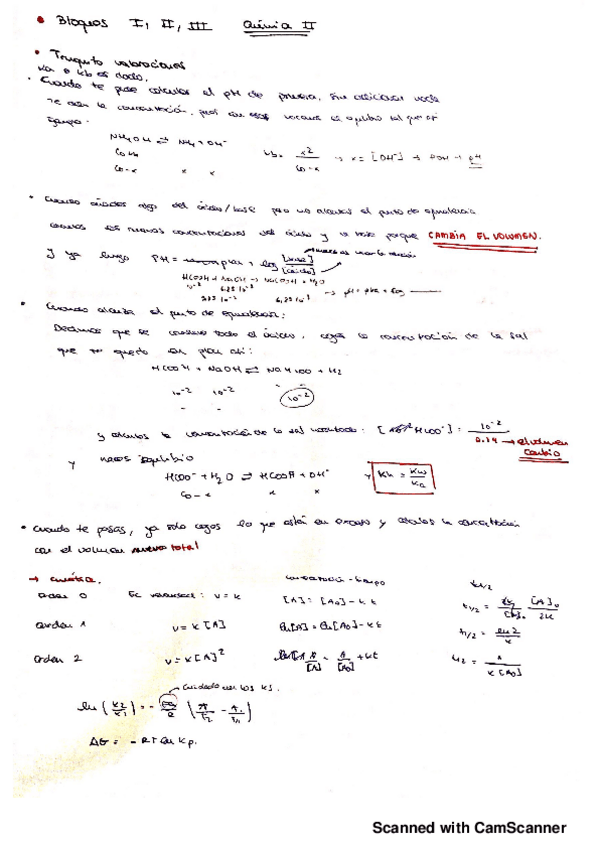 • Bloques I, II, III Química II
• Truquito valoraciones
Ka o Kb es dado.
· Cuando te pide calcular el pH de primeras, sin adicionar nada
te dan la concentración, pues con esas haces el equilibrio tal que así
Ejemplo:
NH4OH ⇌ NH4 + OH⁻
Co-x x x
Kb = x²/Co-x → x = [OH⁻] → pOH → pH
• Cuando añades algo del ácido/base pero no alcanzas el punto de equivalencia
las nuevas concentraciones del ácido y la base porque CAMBIA EL VOLUMEN.
Y ya luego pH = pKa + log [base]/[ácido]
HCOOH + NaOH → NaCOOH + H2O
→ pH = pKa + log
• Cuando alcanza el punto de equivalencia:
Decimos que se consume todo el ácido, coges la concentración de la sal
que te quedó en plan así:
HCOOH + NaOH ⇌ NaHCOO + H2
10⁻² 10⁻²
- - 10⁻²
y calculas la concentración de la sal : [HCOO⁻] = 10⁻²/0.14 → el volumen cambió
y haces equilibrio
HCOO⁻ + H2O ⇌ HCOOH + OH⁻
Co-x x x
y Kh = Kw/Ka
• Cuando te pasas, ya solo coges lo que está en exceso y calculas la concentración
con el volumen nuevo total
→ Cinética. concentración - tiempo t1/2
orden 0 Ec velocidad: v = k [A] = [A0] - kt t1/2 = [A]0/2k
orden 1 v = k[A] ln[A] = ln[A0] - kt t1/2 = ln2/k
orden 2 v = k[A]² 1/[A] = 1/[A0] + kt t1/2 = 1/k[A0]
Cuidado con los KJ.
ln (K2/K1) = - Ea/R (1/T2 - 1/T1)
ΔG = -RT ln Kp.
Scanned with CamScanner